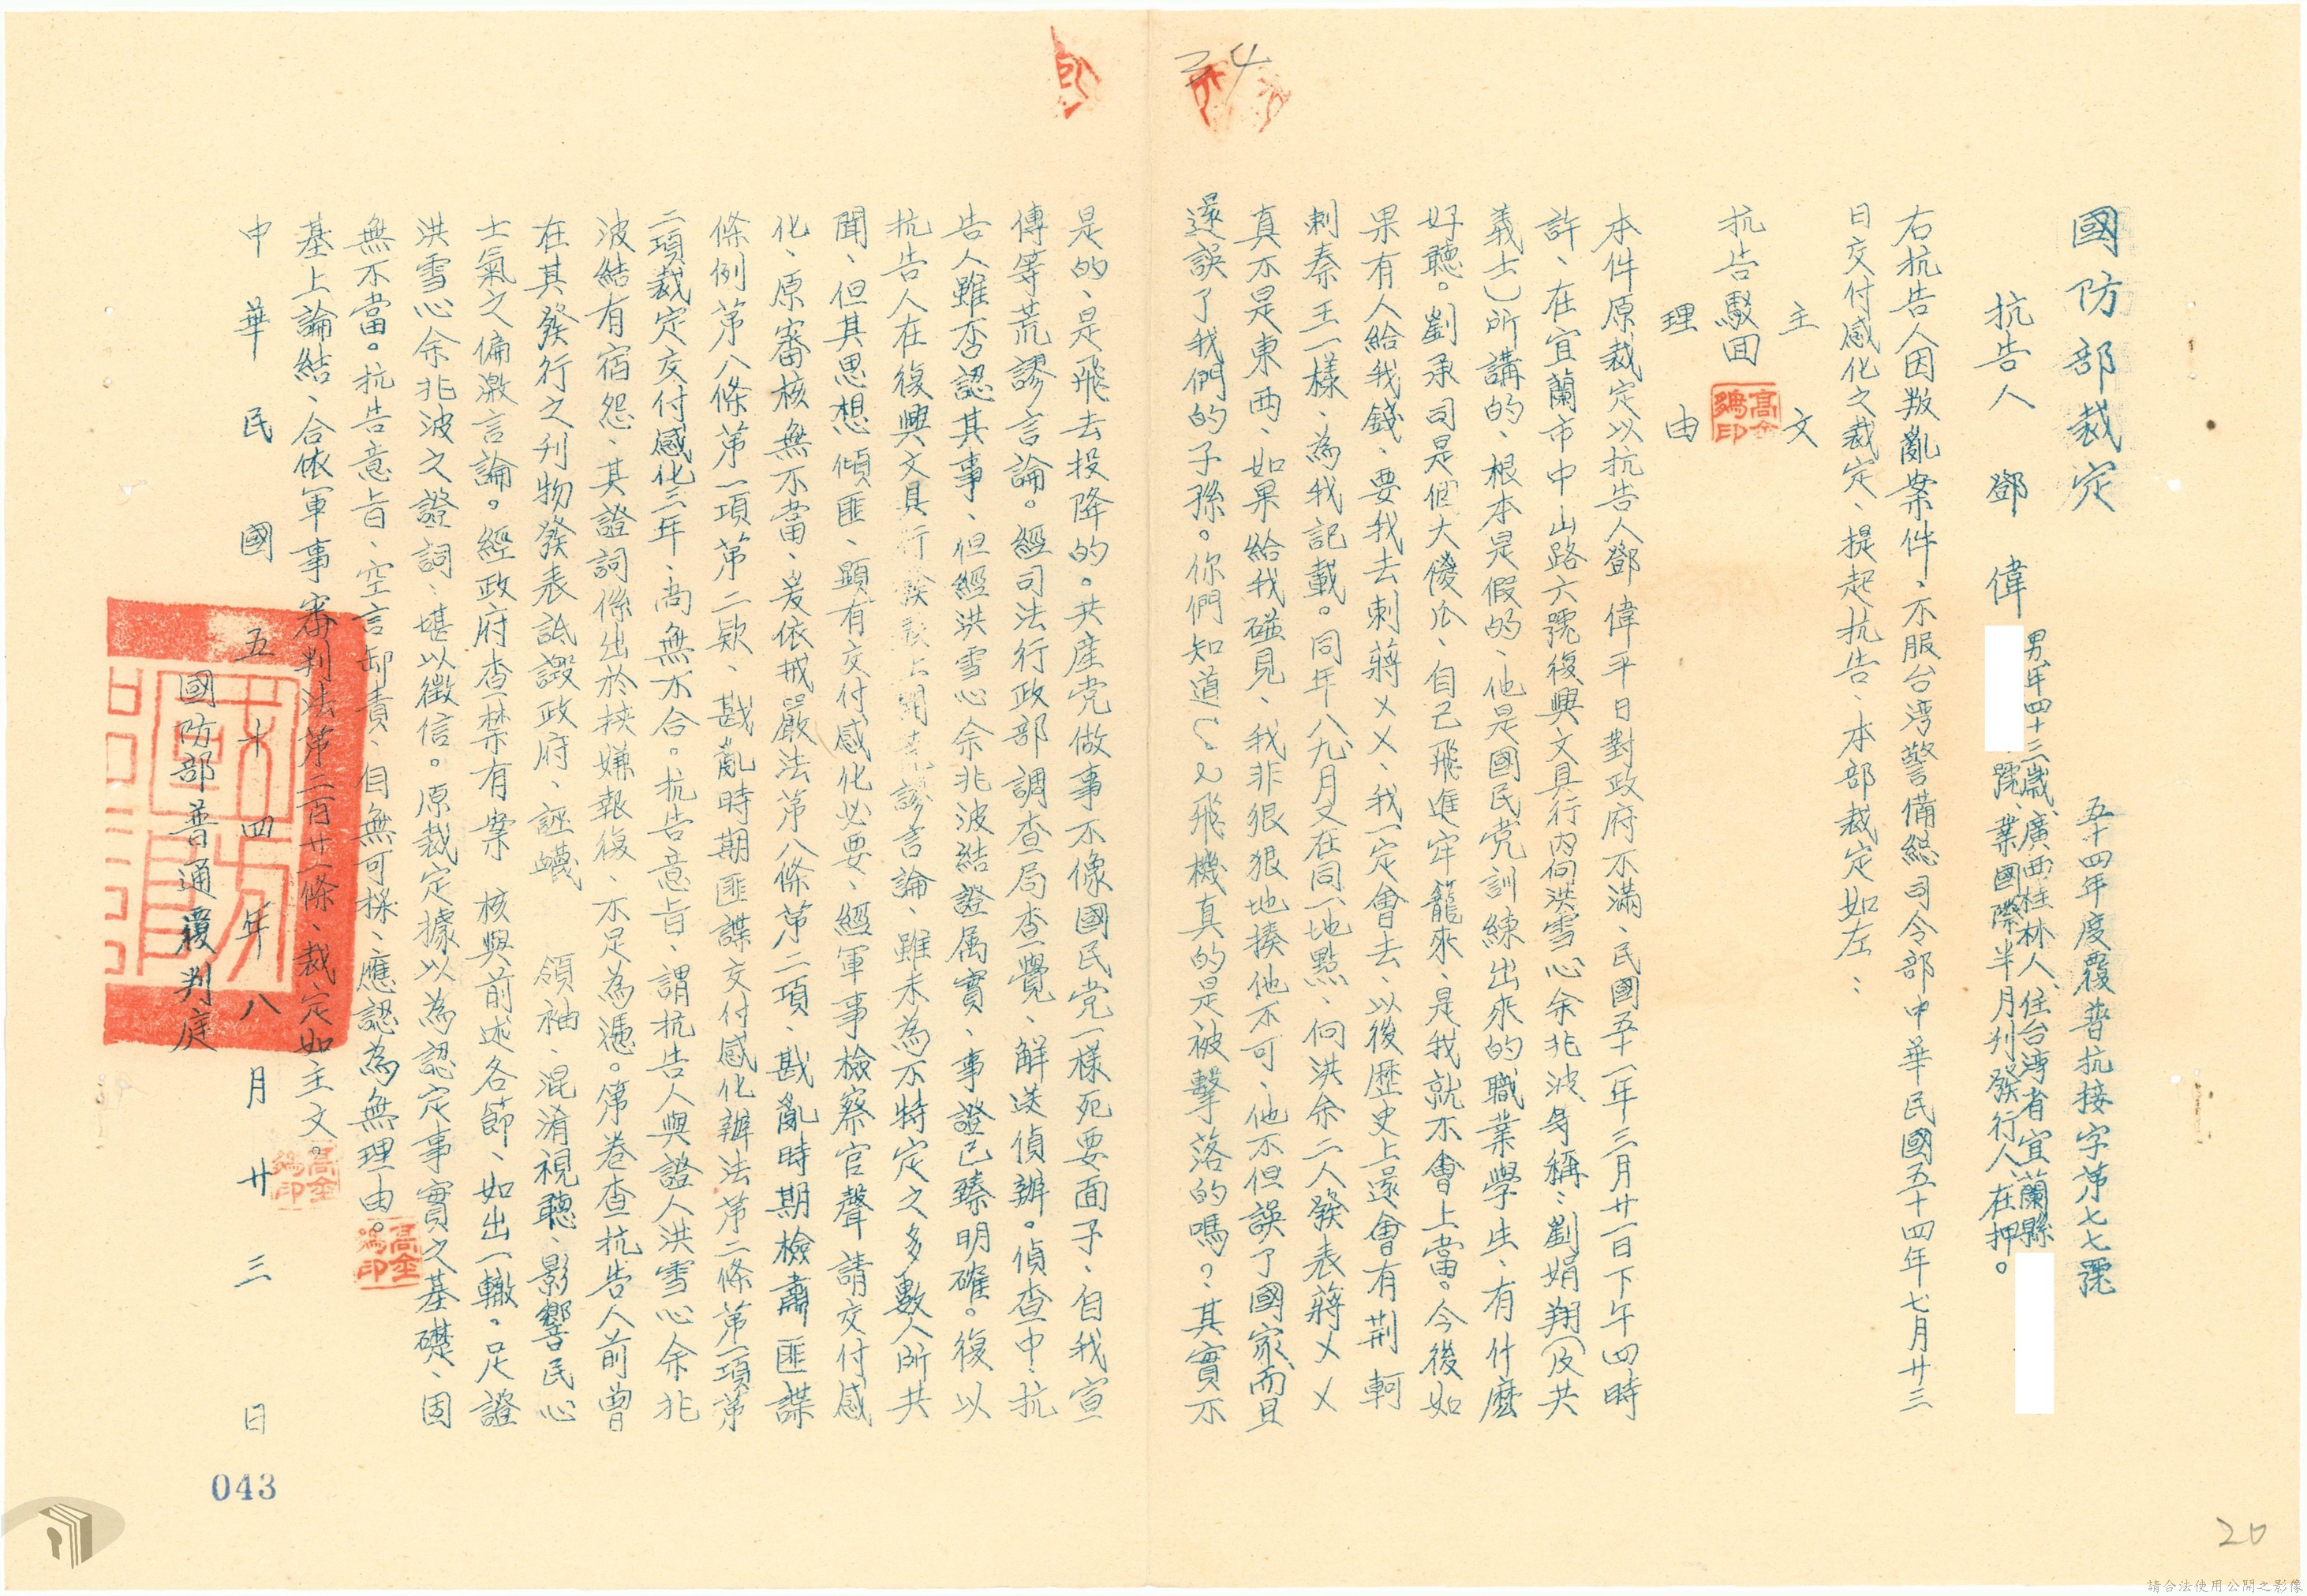 國防部裁定
五十四年度覆普抗接字第七七號
抗告人 鄧 偉
男、年四十三歲、廣西桂林人、住台灣省宜蘭縣
號、業國際半月刊發行人、在押。
右抗告人因叛亂案件、不服台湾警備總司令部中華民國五十四年七月廿三
日交付感化之裁定、提起抗告、本部裁定如左：
主文
抗告駁回
理由
本件原裁定以抗告人鄧偉平日對政府不滿、民國五十一年三月廿一日下午四時
許、在宜蘭市中山路六號復興文具行內向洪雪心余兆波身稱：劉娟翔（反共
義士）所講的、根本是假的、他是國民党訓練出來的職業學生、有什麼
好聽。劉承司是個大傻瓜、自己飛進牢籠來、是我就不會上當。今後如
果有人給我錢、要我去刺蔣乂乂、我一定會去、以後歷史上還會有荆軻
刺秦王一樣、為我記載。同年八九月又在同一地點、向洪余二人發表蔣乂乂
真不是東西、如果給我碰見、我非狠狠地揍他不可、他不但誤了國家、而且
還誤了我們的子孫。你們知道U2飛機真的是被擊落的嗎？其實不
是的、是飛去投降的。共產党做事不像國民党一樣死要面子、自我宣
傳等荒謬言論。經司法行政部調查局查覺、解送偵辦。偵查中、抗
告人雖否認其事、但經洪雪心余兆波結證属實、事證已臻明確。復以
抗告人在復興文具行發表上開荒謬言論、雖未為不特定之多數人所共
聞、但其思想傾匪、顕有交付感化必要、經軍事檢察官聲請交付感
化、原審核無不當、爰依戒嚴法第八條第二項、戡亂時期檢肅匪諜
條例第八條第一項第二款、戡亂時期匪諜交付感化辦法第二條第一項第
二項裁定交付感化三年、尚無不合。抗告意旨、謂抗告人與證人洪雪心余兆
波結有宿怨、其證詞係出於挾嫌報復、不足為憑。第卷查抗告人前曾
在其發行之刊物發表詆譭政府、誣衊 領袖、混淆視聽、影響民心
士氣之偏激言論。經政府查禁有案 核與前述各節、如出一轍。足證
洪雪心余兆波之證詞、堪以徵信。原裁定據以為認定事實之基礎、固
無不當。抗告意旨、空言卸責、自無可採、應認為無理由。
基上論結、合依軍事審判法第二百廿一條、裁定如主文。
中華民國五十四年八月廿三日
國防部普通覆判庭
043
34
20
請合法使用公開之影像